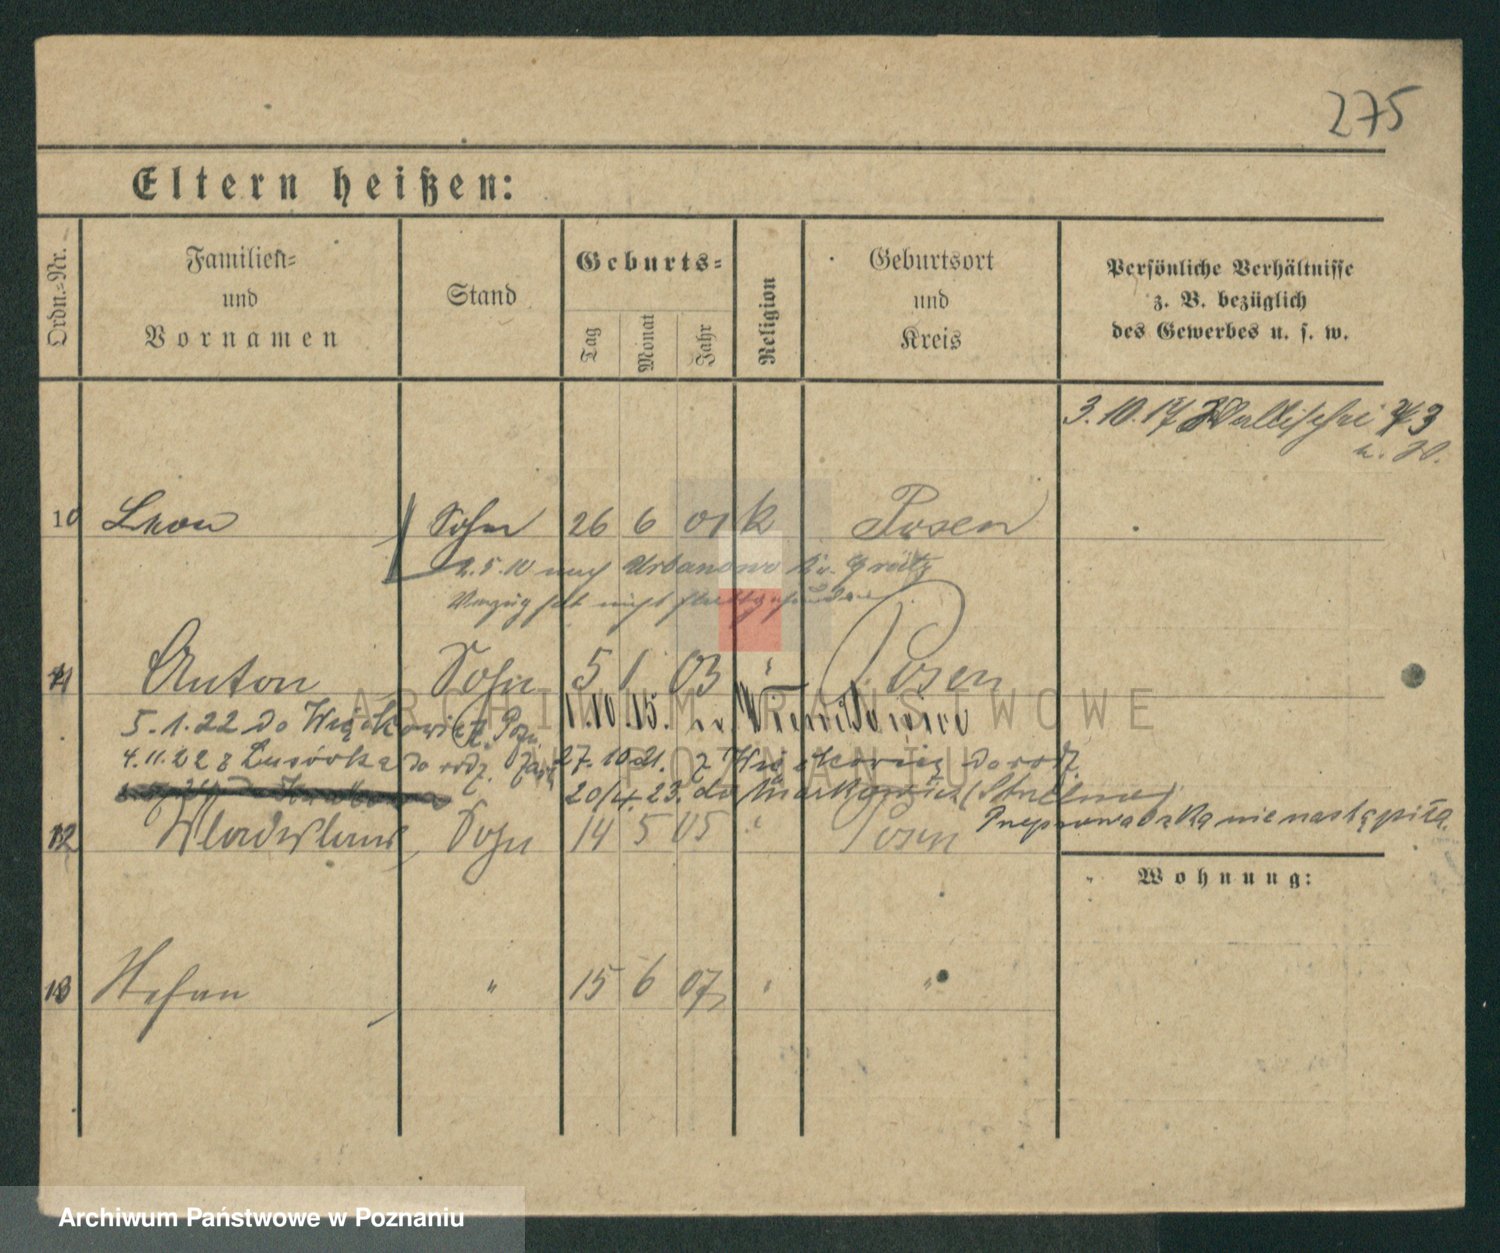 275
Eltern heißen:
Ordn.-Nr.
Familien-
und
Vornamen
Stand
Geburts-
Tag
Monat
Jahr
Religion
Geburtsort
und
Kreis
Persönliche Verhältnisse
z. B. bezüglich
des Gewerbes u. s. w.
3.10.17 Wallischei 3
10 Leon Sohn 26 6 01 k Posen
2.5.10 nach Urbanowo Kr. Grätz
Umzug hat nicht stattgefunden
11 Anton Sohn 5 1 03 " Posen
5.1.22 do Więckowic p. Pozn.
1.10.15.
4.11.22 z Lusówka do rodz.
27.10.21. z Więckowic do rodz.
20/4 23. do Markowic (Strzelno)
Przeprowadzka nie nastąpiła.
12 Wladislaus Sohn 14 5 05 " Posen
Wohnung:
13 Stefan " 15 6 07 " "
ARCHIWUM PAŃSTWOWE
W POZNANIU
Archiwum Państwowe w Poznaniu